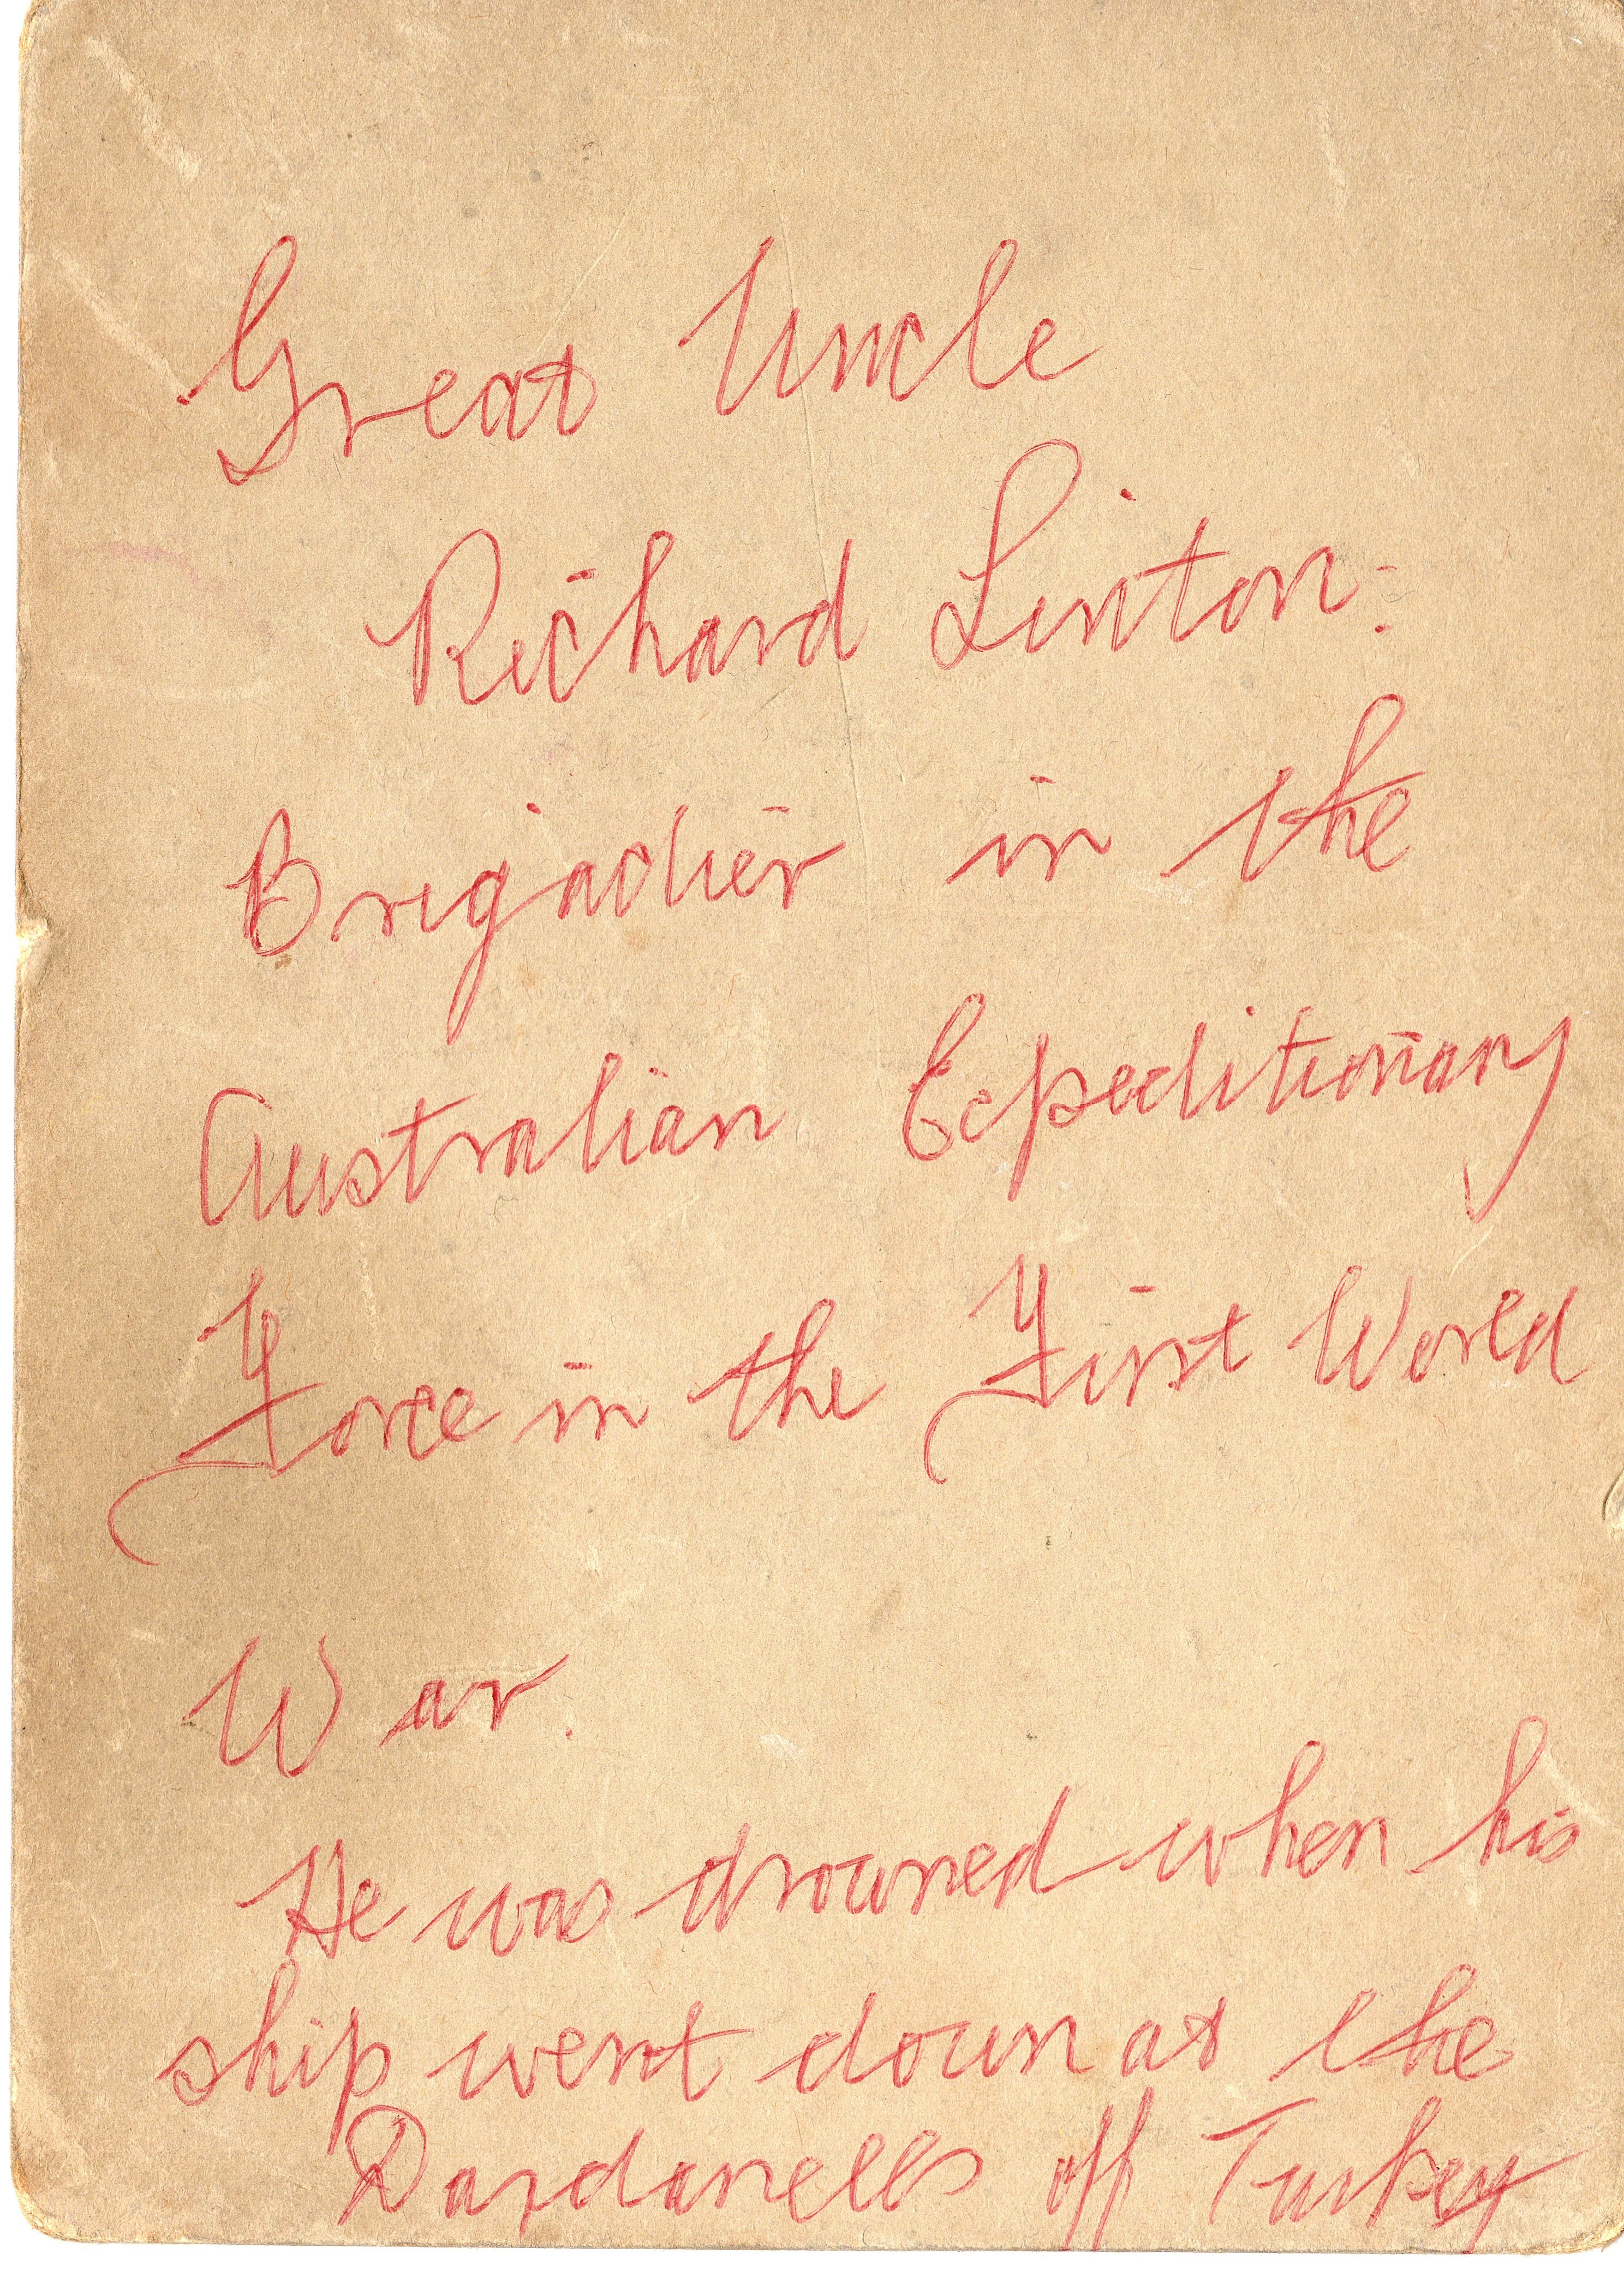 Great Uncle
Richard Linton:
Brigadier in the
Australian Expeditionary
Force in the First World
War.
He was drowned when his
ship went down at the
Dardanells off Turkey